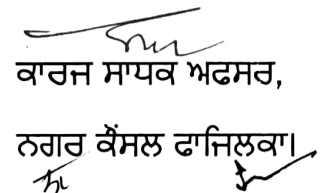 ਕਾਰਜ ਸਾਧਕ ਅਫਸਰ,
ਨਗਰ ਕੌਂਸਲ ਫਾਜਿਲਕਾ।